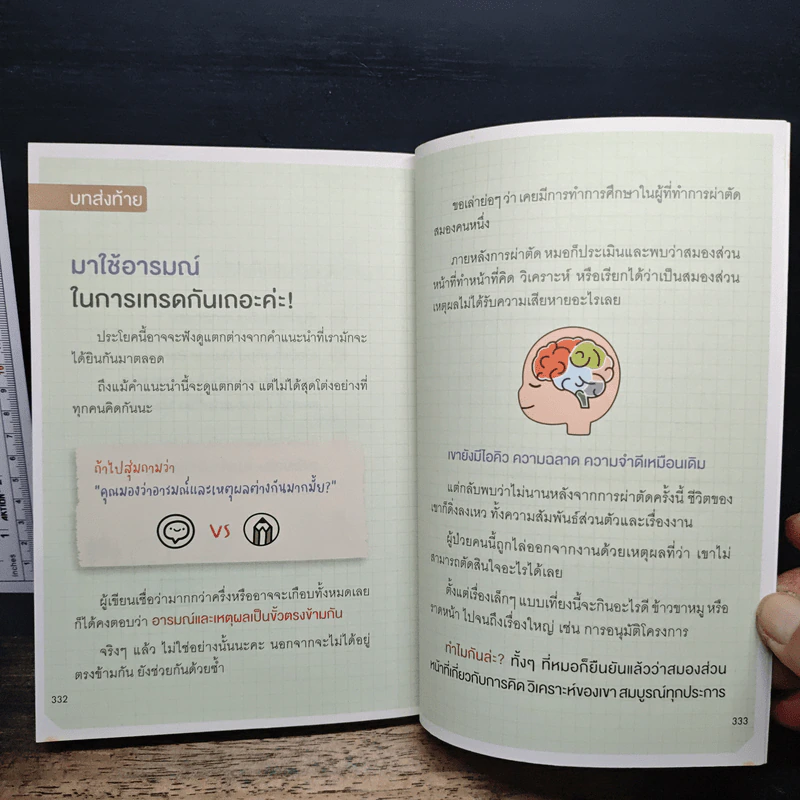 บทส่งท้าย
มาใช้อารมณ์
ในการเทรดกันเถอะค่ะ!
ประโยคนี้อาจจะฟังดูแตกต่างจากคำแนะนำที่เรามักจะ
ได้ยินกันมาตลอด
ถึงแม้คำแนะนำนี้จะดูแตกต่าง แต่ไม่ได้สุดโต่งอย่างที่
ทุกคนคิดกันนะ
ถ้าไปสุ่มถามว่า
"คุณมองว่าอารมณ์และเหตุผลต่างกันมากมั้ย?"
VS
ผู้เขียนเชื่อว่ามากกว่าครึ่งหรืออาจจะเกือบทั้งหมดเลย
ก็ได้คงตอบว่า อารมณ์และเหตุผลเป็นขั้วตรงข้ามกัน
จริงๆ แล้ว ไม่ใช่อย่างนั้นนะคะ นอกจากจะไม่ได้อยู่
ตรงข้ามกัน ยังช่วยกันด้วยซ้ำ
332
ขอเล่าย่อๆ ว่า เคยมีการทำการศึกษาในผู้ที่ทำการผ่าตัด
สมองคนหนึ่ง
ภายหลังการผ่าตัด หมอก็ประเมินและพบว่าสมองส่วน
หน้าที่ทำหน้าที่คิด วิเคราะห์ หรือเรียกได้ว่าเป็นสมองส่วน
เหตุผลไม่ได้รับความเสียหายอะไรเลย
เขายังมีไอคิว ความฉลาด ความจำดีเหมือนเดิม
แต่กลับพบว่าไม่นานหลังจากการผ่าตัดครั้งนี้ ชีวิตของ
เขาก็ดิ่งลงเหว ทั้งความสัมพันธ์ส่วนตัวและเรื่องงาน
ผู้ป่วยคนนี้ถูกไล่ออกจากงานด้วยเหตุผลที่ว่า เขาไม่
สามารถตัดสินใจอะไรได้เลย
ตั้งแต่เรื่องเล็กๆ แบบเที่ยงนี้จะกินอะไรดี ข้าวขาหมู หรือ
ราดหน้า ไปจนถึงเรื่องใหญ่ เช่น การอนุมัติโครงการ
ทำไมกันล่ะ? ทั้งๆ ที่หมอก็ยืนยันแล้วว่าสมองส่วน
หน้าที่เกี่ยวกับการคิด วิเคราะห์ของเขา สมบูรณ์ทุกประการ
333